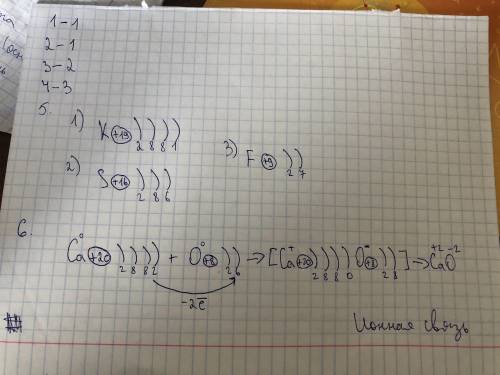 1-1
2-1
3-2
4-3
5.
1) K +19 ) ) ) ) 2 8 8 1
2) S +16 ) ) ) 2 8 6
3) F +9 ) ) 2 7
6.
Ca⁰ +20 ) ) ) ) 2 8 8 2 + O⁰ +8 ) ) 2 6 → [Ca⁺ +20 ) ) ) ) 2 8 8 0 O⁻ +8 ) ) 2 8 ] → Ca⁺²O⁻²
-2e̅
Ионная связь